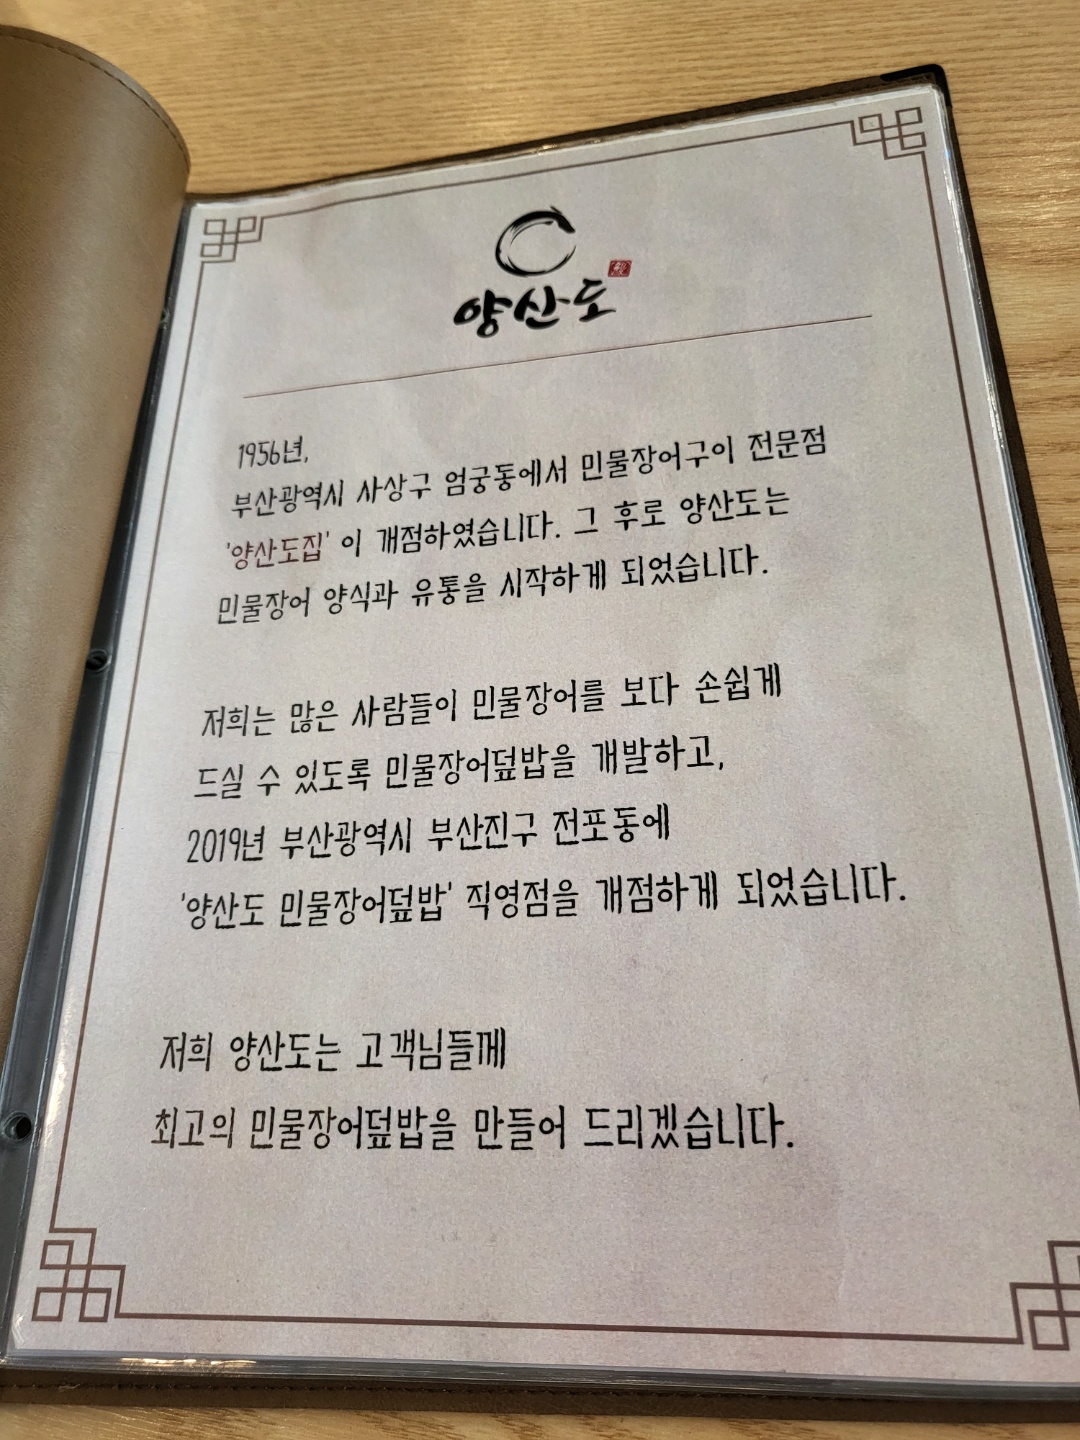 양산도
1956년,
부산광역시 사상구 엄궁동에서 민물장어구이 전문점
'양산도집' 이 개점하였습니다. 그 후로 양산도는
민물장어 양식과 유통을 시작하게 되었습니다.
저희는 많은 사람들이 민물장어를 보다 손쉽게
드실 수 있도록 민물장어덮밥을 개발하고,
2019년 부산광역시 부산진구 전포동에
'양산도 민물장어덮밥' 직영점을 개점하게 되었습니다.
저희 양산도는 고객님들께
최고의 민물장어덮밥을 만들어 드리겠습니다.